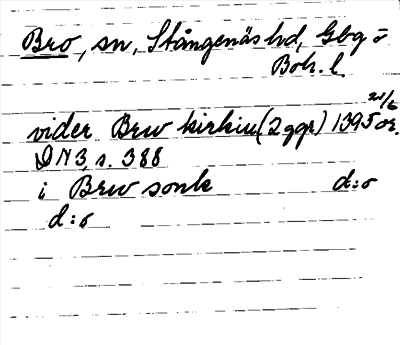 Bro, sn, Stångenäs hd, Gbg o
Boh. l
vider Brw kirkiu (2 ggr) 1395 21/6 or.
DN 3, s. 388
i Brw sonk d:o
d:o